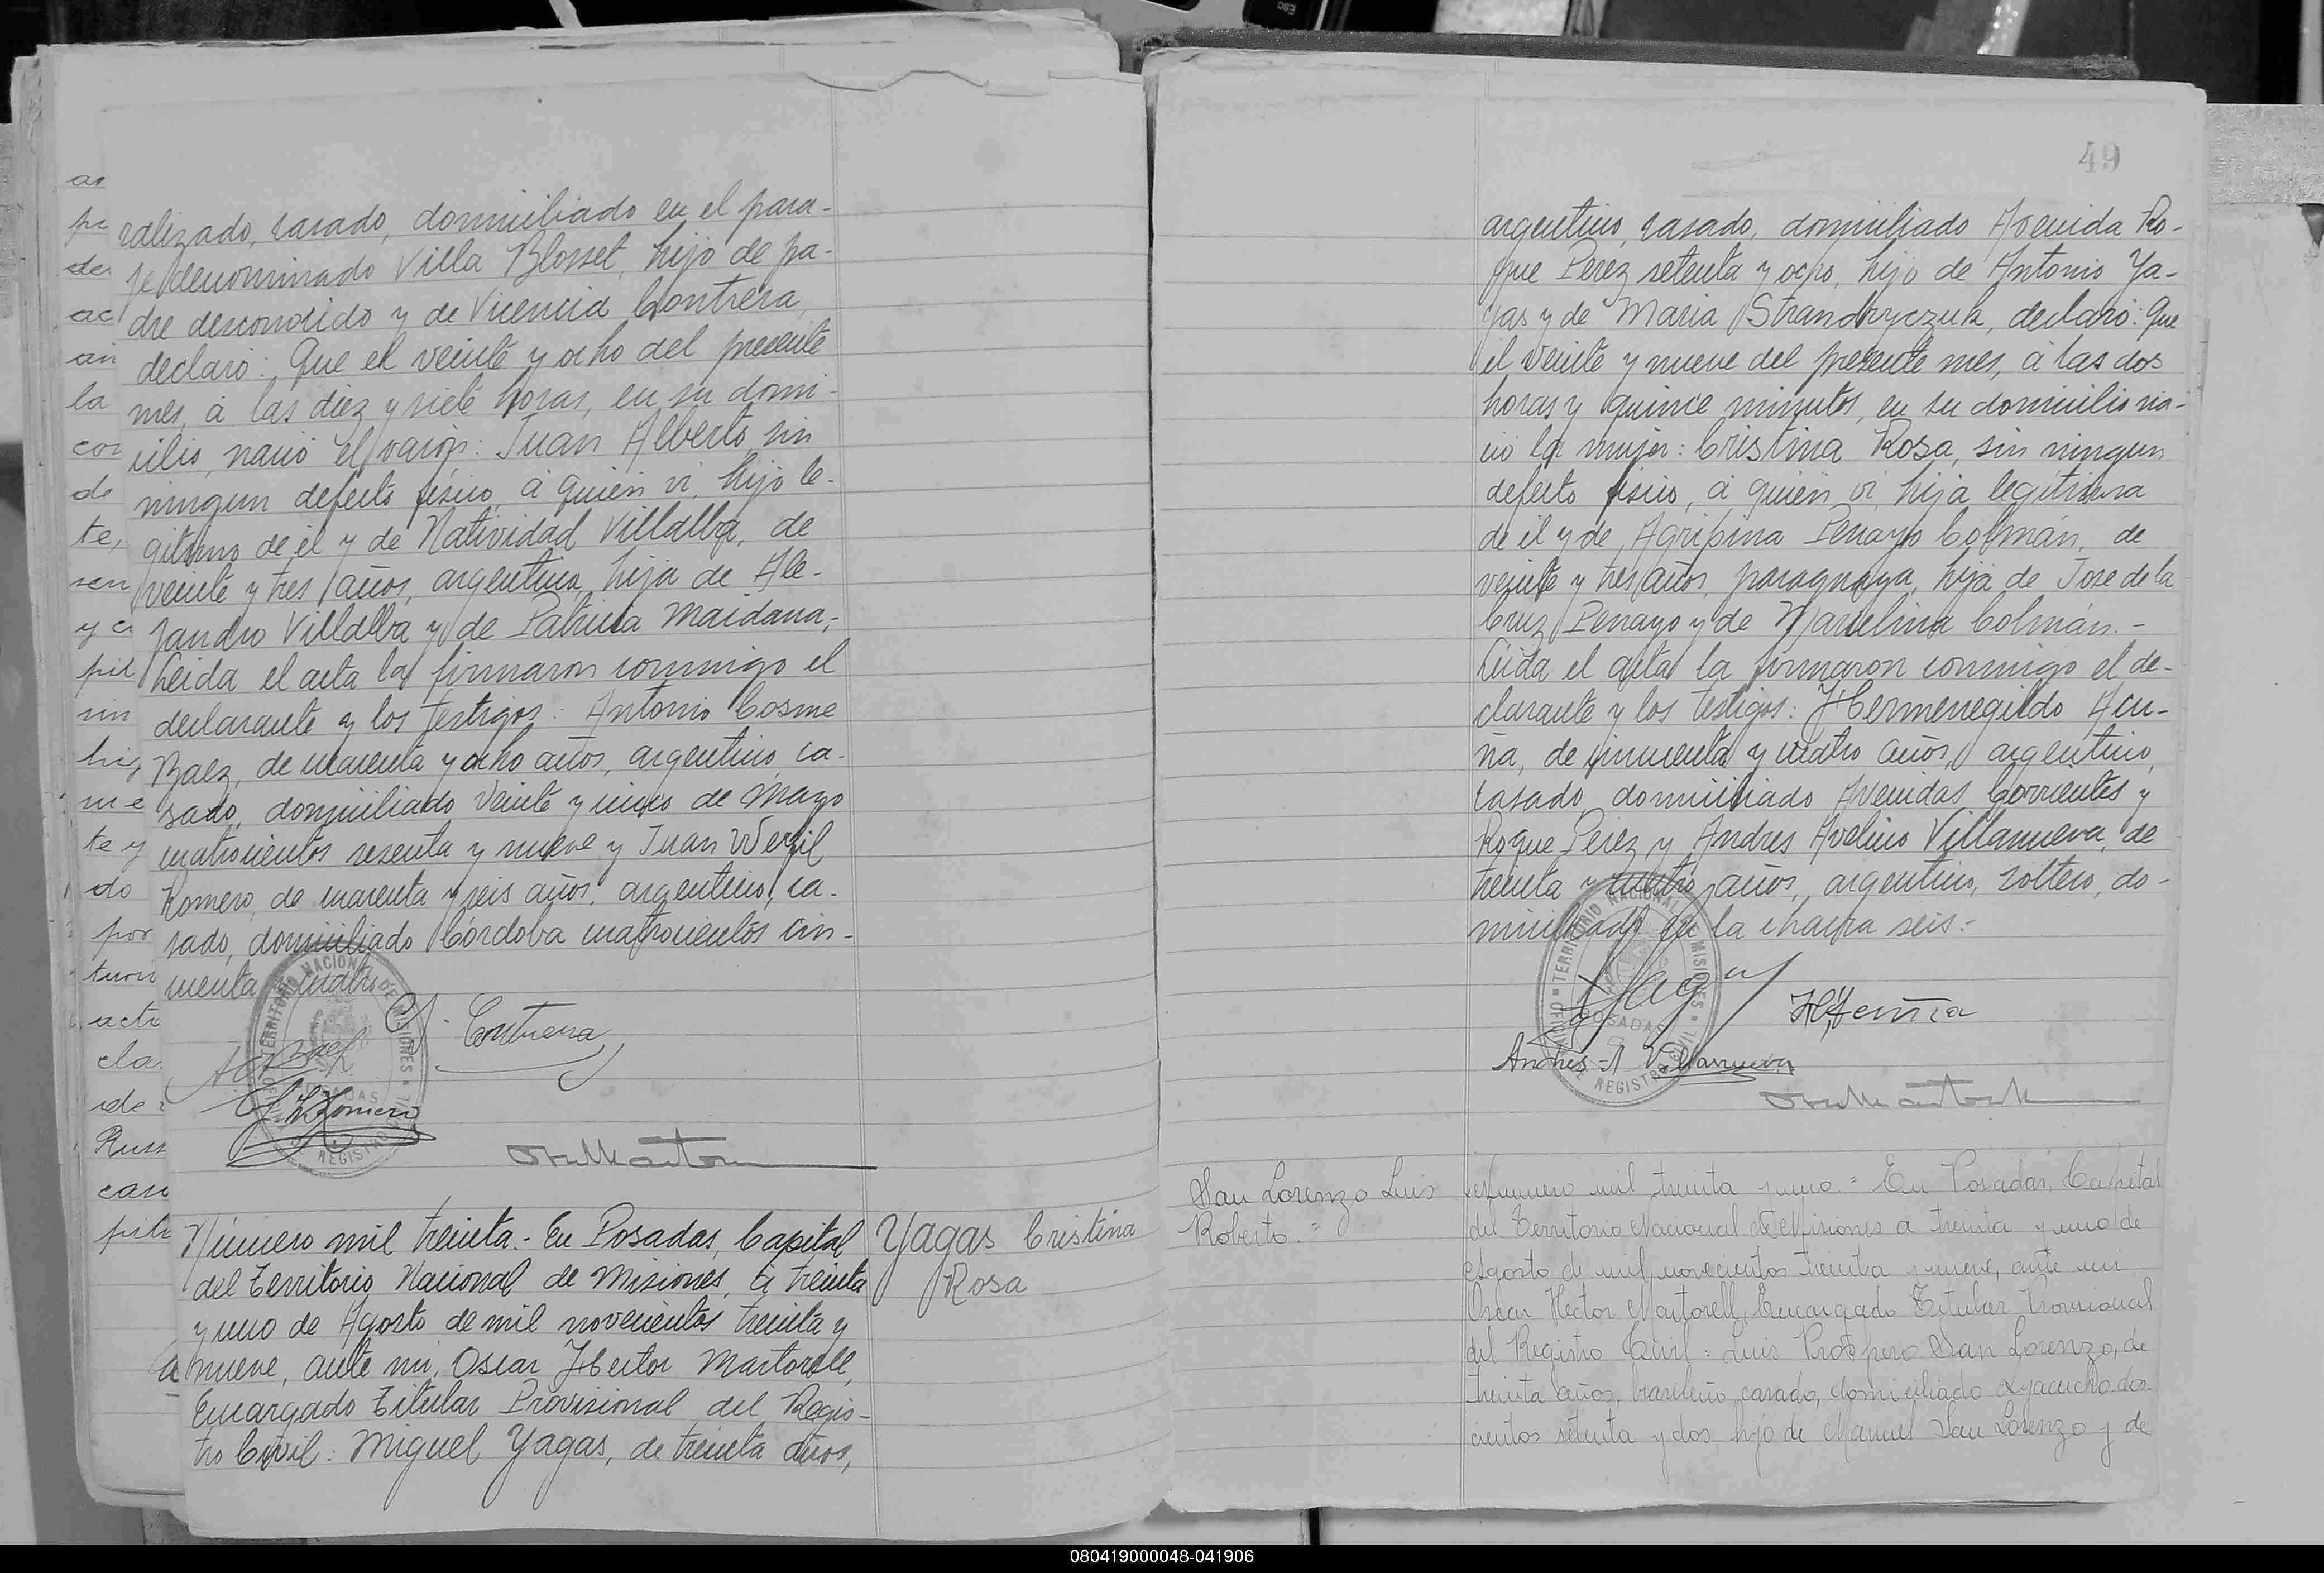 ralizado, casado, domiciliado en el para-
je denominado Villa Blosset, hijo de pa-
dre desconocido y de Vicencia Contrera,
declaró: Que el veinte y ocho del presente
mes, á las diez y siete horas, en su domi-
cilio, nació el varón: Juan Alberto sin
ningun defecto fisico, á quien vi, hijo le-
gitimo de él y de Natividad Villalba, de
veinte y tres años, argentina, hija de Ale-
jandro Villalba y de Patricia Maidana,-
Leida el acta la firmaron conmigo el
declarante y los testigos: Antonio Cosme
Baez, de cuarenta y ocho años, argentino, ca-
sado, domiciliado Veinte y cinco de Mayo
cuatrocientos sesenta y nueve y Juan Wergil
Romero, de cuarenta y seis años, argentino, ca-
sado, domiciliado Córdoba cuatrocientos cin-
cuenta y cuatro
Contrera
A C Baez
Romero
TERRITORIO NACIONAL DE MISIONES
POSADAS
REGISTRO CIVIL
Número mil treinta.- En Posadas, Capital
del Territorio Nacional de Misiones, á treinta
y uno de Agosto de mil novecientos treinta y
nueve, ante mi, Oscar Hector Martorell,
Encargado Titular Provisional del Regis-
tro Civil: Miguel Yagas, de treinta años,
Yagas Cristina
Rosa
ar
pr
de
ac
an
la
cor
de
te,
sen
y c
pil
sin
hij
me
te y
do
por
turi
acta
cla
de
Russ
casa
pita
49
argentino, casado, domiciliado Avenida Ro-
que Perez setenta y ocho, hijo de Antonio Ya-
gas y de Maria Strandryczuk, declaró: Que
el veinte y nueve del presente mes, á las dos
horas y quince minutos, en su domicilio na-
ció la mujer: Cristina Rosa, sin ningun
defecto fisico, á quien vi, hija legitima
de él y de Agripina Penayo Colmán, de
veinte y tres años, paraguaya, hija de Jose de la
Cruz Penayo y de Marcelina Colmán.-
Leida el acta la firmaron conmigo el de-
clarante y los testigos: Hermenegildo Acu-
ña, de cincuenta y cuatro años, argentino,
casado, domiciliado Avenidas Corrientes y
Roque Perez y Andres Avelino Villanueva, de
treinta y cuatro años, argentino, soltero, do-
miciliado en la chacra seis.-
Yagas
H Acuña
Andres A Villanueva
TERRITORIO NACIONAL DE MISIONES
OFICINA
POSADAS
REGISTRO CIVIL
San Lorenzo Luis
Roberto.=
Número mil treinta y uno.= En Posadas, Capital
del Territorio Nacional de Misiones a treinta y uno de
Agosto de mil novecientos treinta y nueve, ante mi
Oscar Hector Martorell, Encargado Titular Provisional
del Registro Civil: Luis Prospero San Lorenzo, de
treinta años, brasileño, casado, domiciliado Ayacucho dos-
cientos setenta y dos hijo de Manuel San Lorenzo y de
080419000048-041906